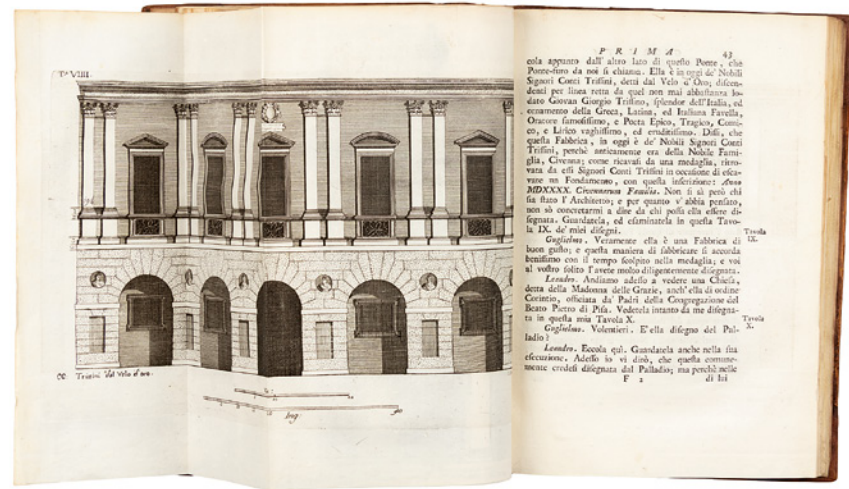 Ta VIIII.
CC: Trisini dal Velo d'oro.
P R I M A 43
cola appunto dall' altro lato di questo Ponte, che
Ponte-furo da noi si chiama. Ella è in oggi de' Nobili
Signori Conti Trissini, detti dal Velo d'Oro; discen-
denti per linea retta da quel non mai abbastanza lo-
dato Giovan Giorgio Trissino, splendor dell'Italia, ed
ornamento della Greca, Latina, ed Italiana Favella,
Oratore famosissimo, e Poeta Epico, Tragico, Comi-
co, e Lirico vaghissimo, ed eruditissimo. Dissi, che
questa Fabbrica, in oggi è de' Nobili Signori Conti
Trissini, perchè anticamente era della Nobile Fami-
glia, Civenna; come ricavasi da una medaglia, ritro-
vata da essi Signori Conti Trissini in occasione di esca-
vare un Fondamento, con questa inscrizione: Anno
MDXXXX. Civennarum Familia. Non si sà però chi
sia stato l' Architetto; e per quanto v' abbia pensato,
non sò concretarmi a dire da chi possa ella essere di-
segnata. Guardatela, ed esaminatela in questa Tavo-
la IX. de' miei disegni.
Tavola
IX.
Guglielmo. Veramente ella è una Fabbrica di
buon gusto; e questa maniera di fabbricare si accorda
benissimo con il tempo scolpito nella medaglia; e voi
al vostro solito l'avete molto diligentemente disegnata.
Leandro. Andiamo adesso a vedere una Chiesa,
detta della Madonna delle Grazie, anch' ella di ordine
Corintio, officiata da' Padri della Congregazione del
Beato Pietro di Pisa. Vedetela intanto da me disegna-
ta in questa mia Tavola X.
Tavola
X.
Guglielmo. Volentieri. E' ella disegno del Pal-
ladio?
Leandro. Eccola quì. Guardatela anche nella sua
esecuzione. Adesso io vi dirò, che questa comune-
mente credesi disegnata dal Palladio; ma perchè nelle
F 2 di lui